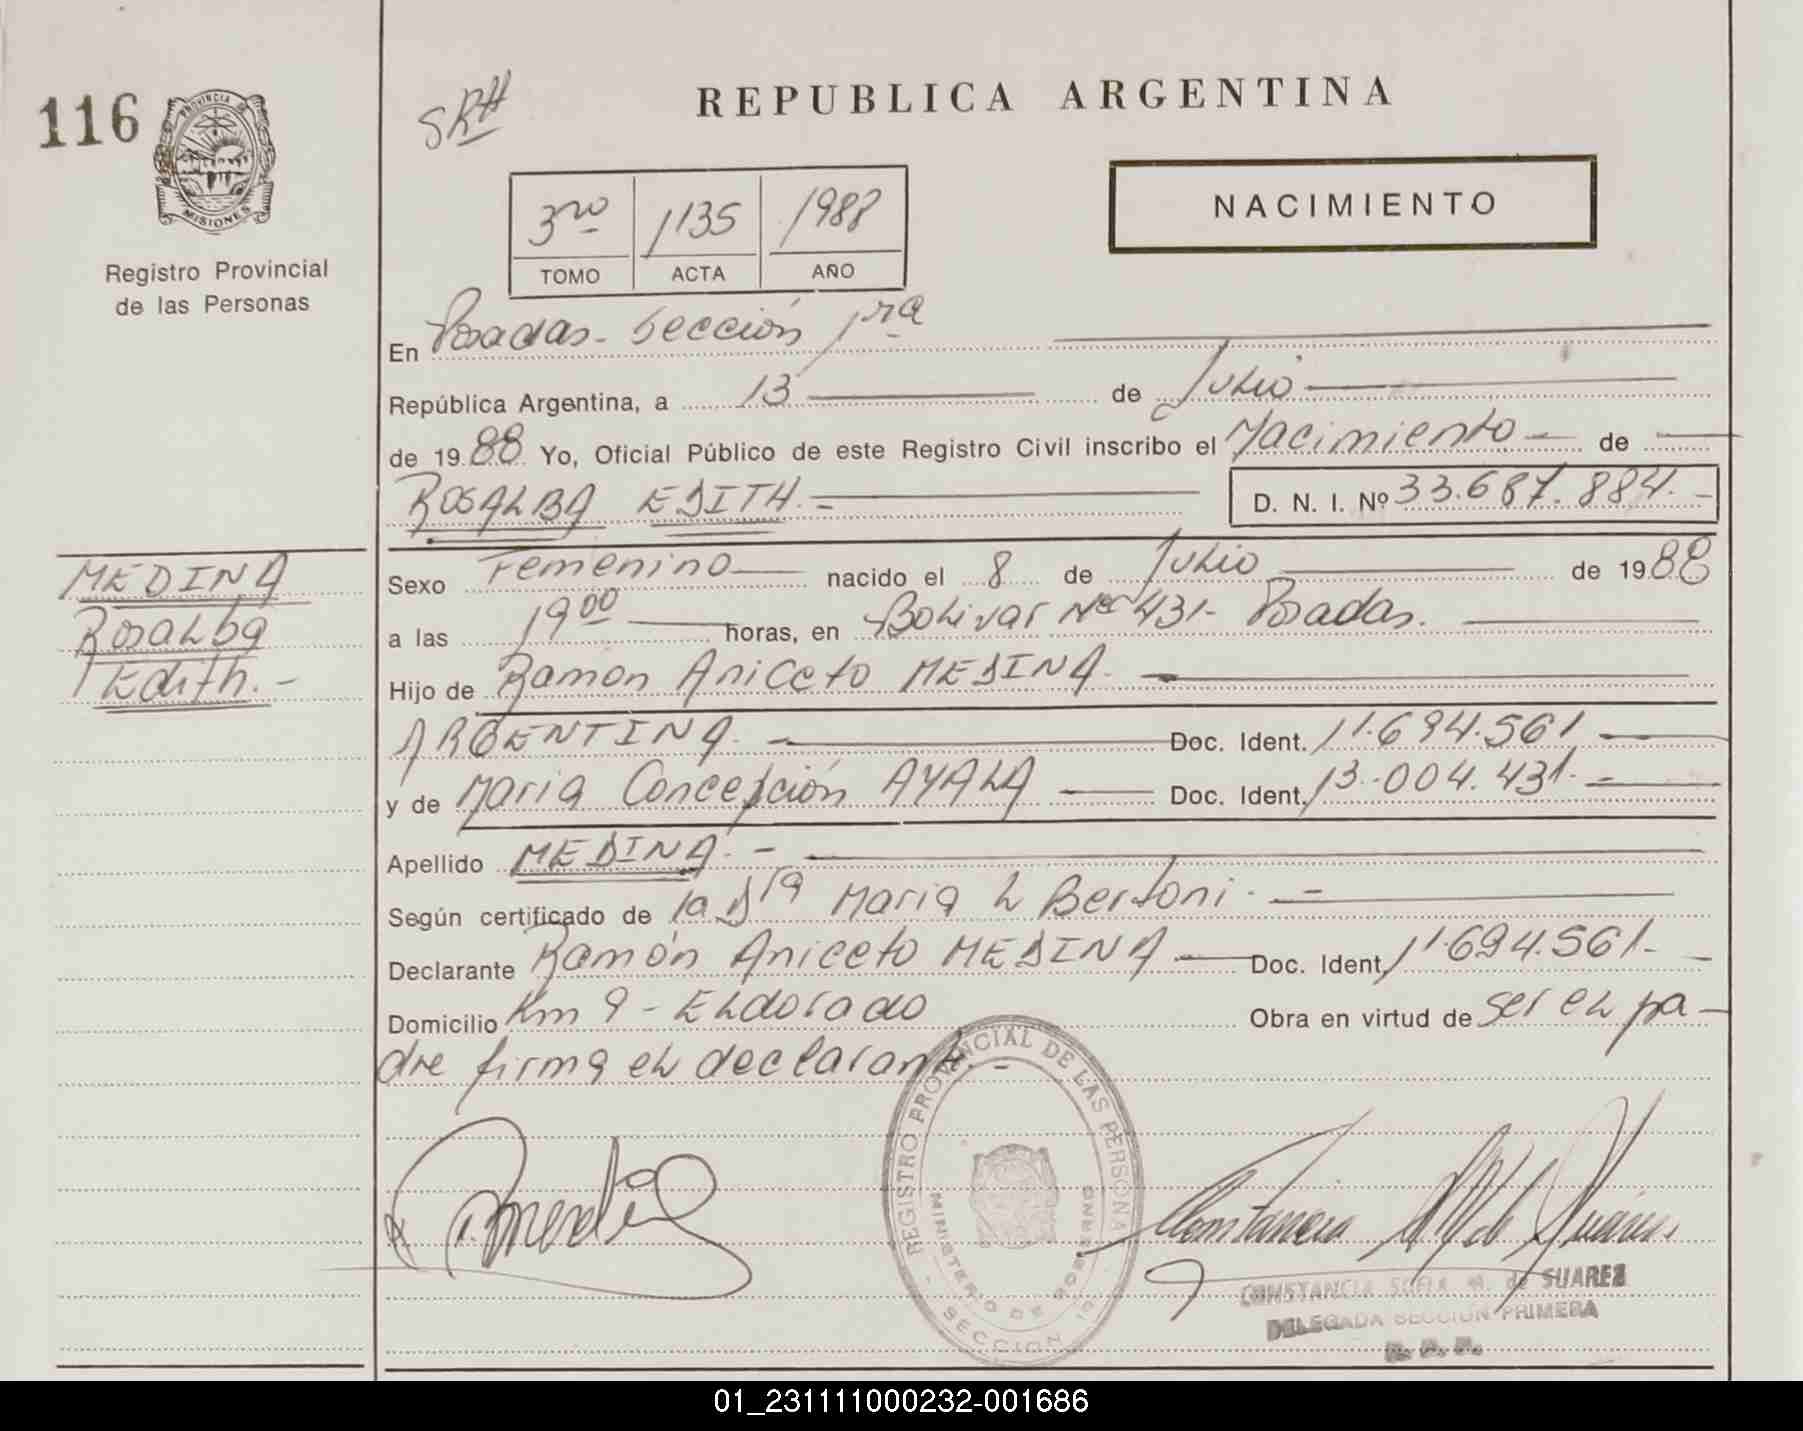 116
PROVINCIA DE
MISIONES
Registro Provincial
de las Personas
SRH
REPUBLICA ARGENTINA
NACIMIENTO
3ro 1135 1988
TOMO ACTA AÑO
En Posadas - Sección 1ra
República Argentina, a 13 de Julio
de 1988 Yo, Oficial Público de este Registro Civil inscribo el Nacimiento - de
ROSALBA EDITH.- D. N. I. Nº 33.687.884.-
MEDINA
Rosalba
Edith.-
Sexo Femenino nacido el 8 de Julio de 1988
a las 19 00 horas, en Bolivar Nº 431- Posadas.
Hijo de Ramon Aniceto MEDINA.
ARGENTINA.- Doc. Ident. 11.694.561
y de Maria Concepción AYALA Doc. Ident. 13.004.431.-
Apellido MEDINA.-
Según certificado de la Dra Maria L Bertoni.-
Declarante Ramón Aniceto MEDINA Doc. Ident. 11.694.561-
Domicilio Km 9 - Eldorado Obra en virtud de ser el pa-
dre firma el declarante.-
REGISTRO PROVINCIAL DE LAS PERSONAS
MINISTERIO DE GOBIERNO
SECCION 1
CONSTANCIA SOFIA M. de SUAREZ
DELEGADA SECCION PRIMERA
R. P. P.
01_231111000232-001686